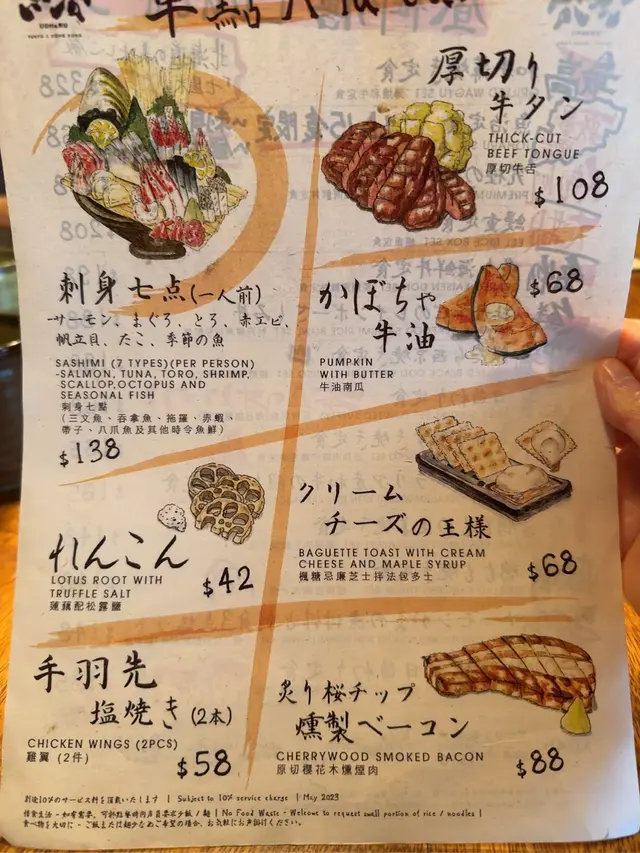 厚切り
牛タン
THICK-CUT
BEEF TONGUE
厚切牛舌
$108
刺身七点(一人前)
サーモン、まぐろ、とろ、赤エビ、
帆立貝、たこ、季節の魚
SASHIMI (7 TYPES)(PER PERSON)
-SALMON, TUNA, TORO, SHRIMP,
SCALLOP,OCTOPUS AND
SEASONAL FISH
刺身七點
(三文魚、吞拿魚、拖羅、赤蝦、
帶子、八爪魚及其他時令魚鮮)
$138
かぼちゃ
牛油
$68
PUMPKIN
WITH BUTTER
牛油南瓜
れんこん
LOTUS ROOT WITH
TRUFFLE SALT
蓮藕配松露鹽
$42
クリーム
チーズの王様
BAGUETTE TOAST WITH CREAM
CHEESE AND MAPLE SYRUP
楓糖忌廉芝士拌法包多士
$68
手羽先
塩焼き(2本)
CHICKEN WINGS (2PCS)
雞翼 (2件)
$58
炙り桜チップ
燻製ベーコン
CHERRYWOOD SMOKED BACON
原切櫻花木燻煙肉
$88
別途10%のサービス料を頂戴いたします | Subject to 10% service charge | May 2023
惜食生活 - 如有需要，可於點餐時向店員要求少飯 / 麵 | No Food Waste - Welcome to request small portion of rice / noodles |
食べ物を大切に - ご飯または麺少なめご希望の場合、お気軽にお声掛けください。